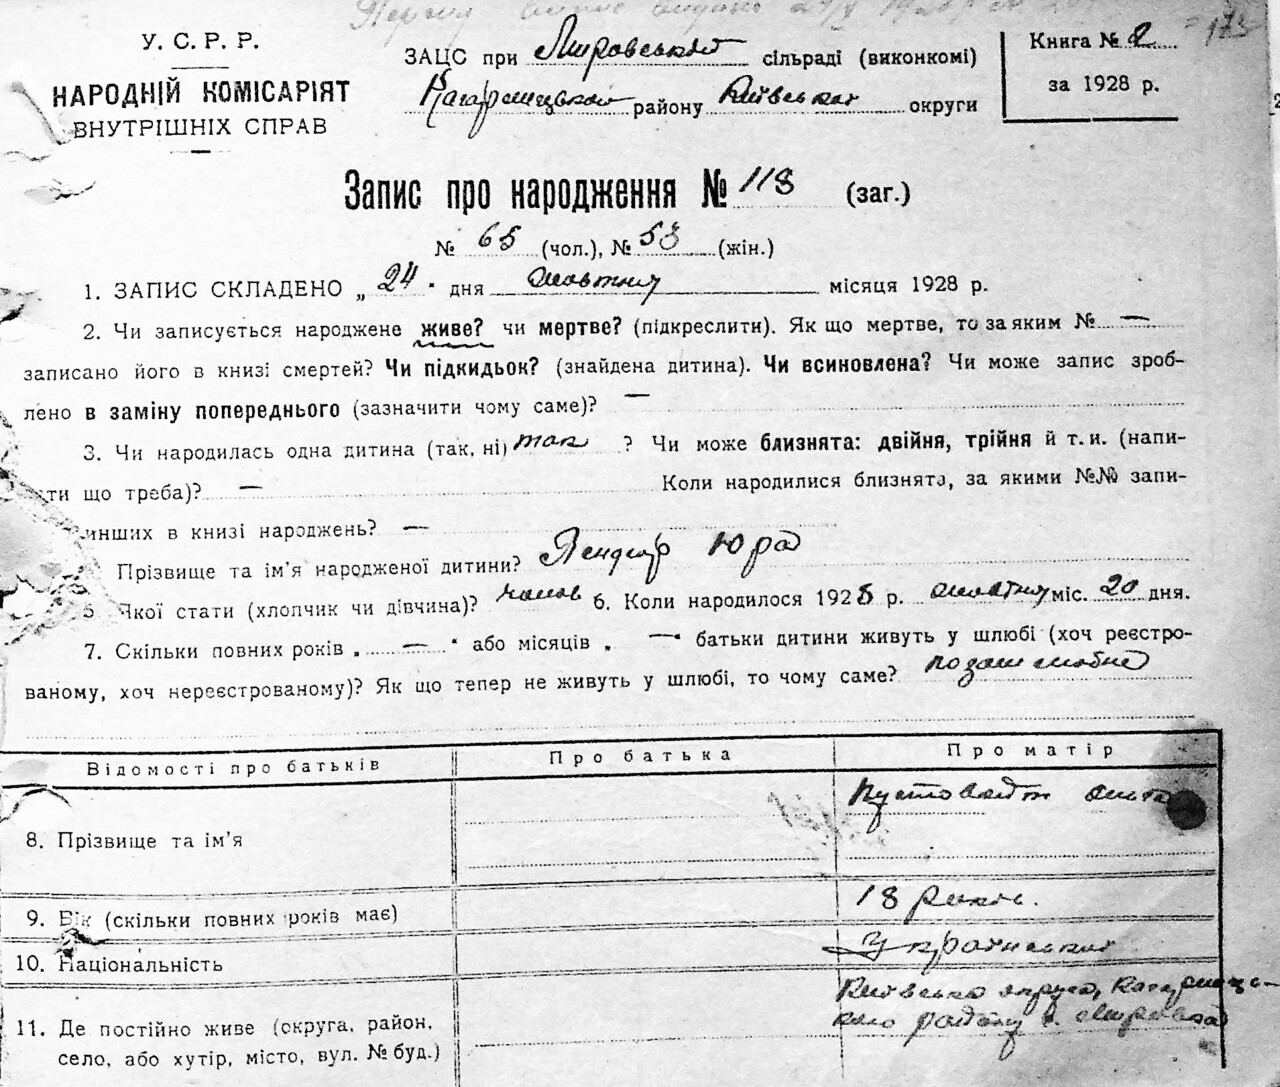 Першу
У. С. Р. Р.
НАРОДНІЙ КОМІСАРІЯТ
ВНУТРІШНІХ СПРАВ
ЗАЦС при Мировській сільраді (виконкомі)
Кагарлицького району Київської округи
Книга № 2
за 1928 р.
Запис про народження № 118 (заг.)
№ 65 (чол.), № 53 (жін.)
1. ЗАПИС СКЛАДЕНО „ 24 " дня жовтня місяця 1928 р.
2. Чи записується народжене живе? чи мертве? (підкреслити). Як що мертве, то за яким № —
записано його в книзі смертей? Чи підкидьок? (знайдена дитина). Чи всиновлена? Чи може запис зроб-
лено в заміну попереднього (зазначити чому саме)? —
3. Чи народилась одна дитина (так, ні) так ? Чи може близнята: двійня, трійня й т. и. (напи-
ти що треба)? — Коли народилися близнята, за якими №№ запи-
инших в книзі народжень? —
Прізвище та ім'я народженої дитини? Юра
5 Якої стати (хлопчик чи дівчина)? 6. Коли народилося 1928 р. жовтня міс. 20 дня.
7. Скільки повних років „ — " або місяців „ — " батьки дитини живуть у шлюбі (хоч реєстро-
ваному, хоч нереєстрованому)? Як що тепер не живуть у шлюбі, то чому саме? позашлюбне
Відомості про батьків Про батька Про матір
8. Прізвище та ім'я Пустовойт
9. Вік (скільки повних років має) 18 років.
10. Національність Українська
11. Де постійно живе (округа, район, село, або хутір, місто, вул. № буд.) Київська округа, Кагарлицького району с. Мировка